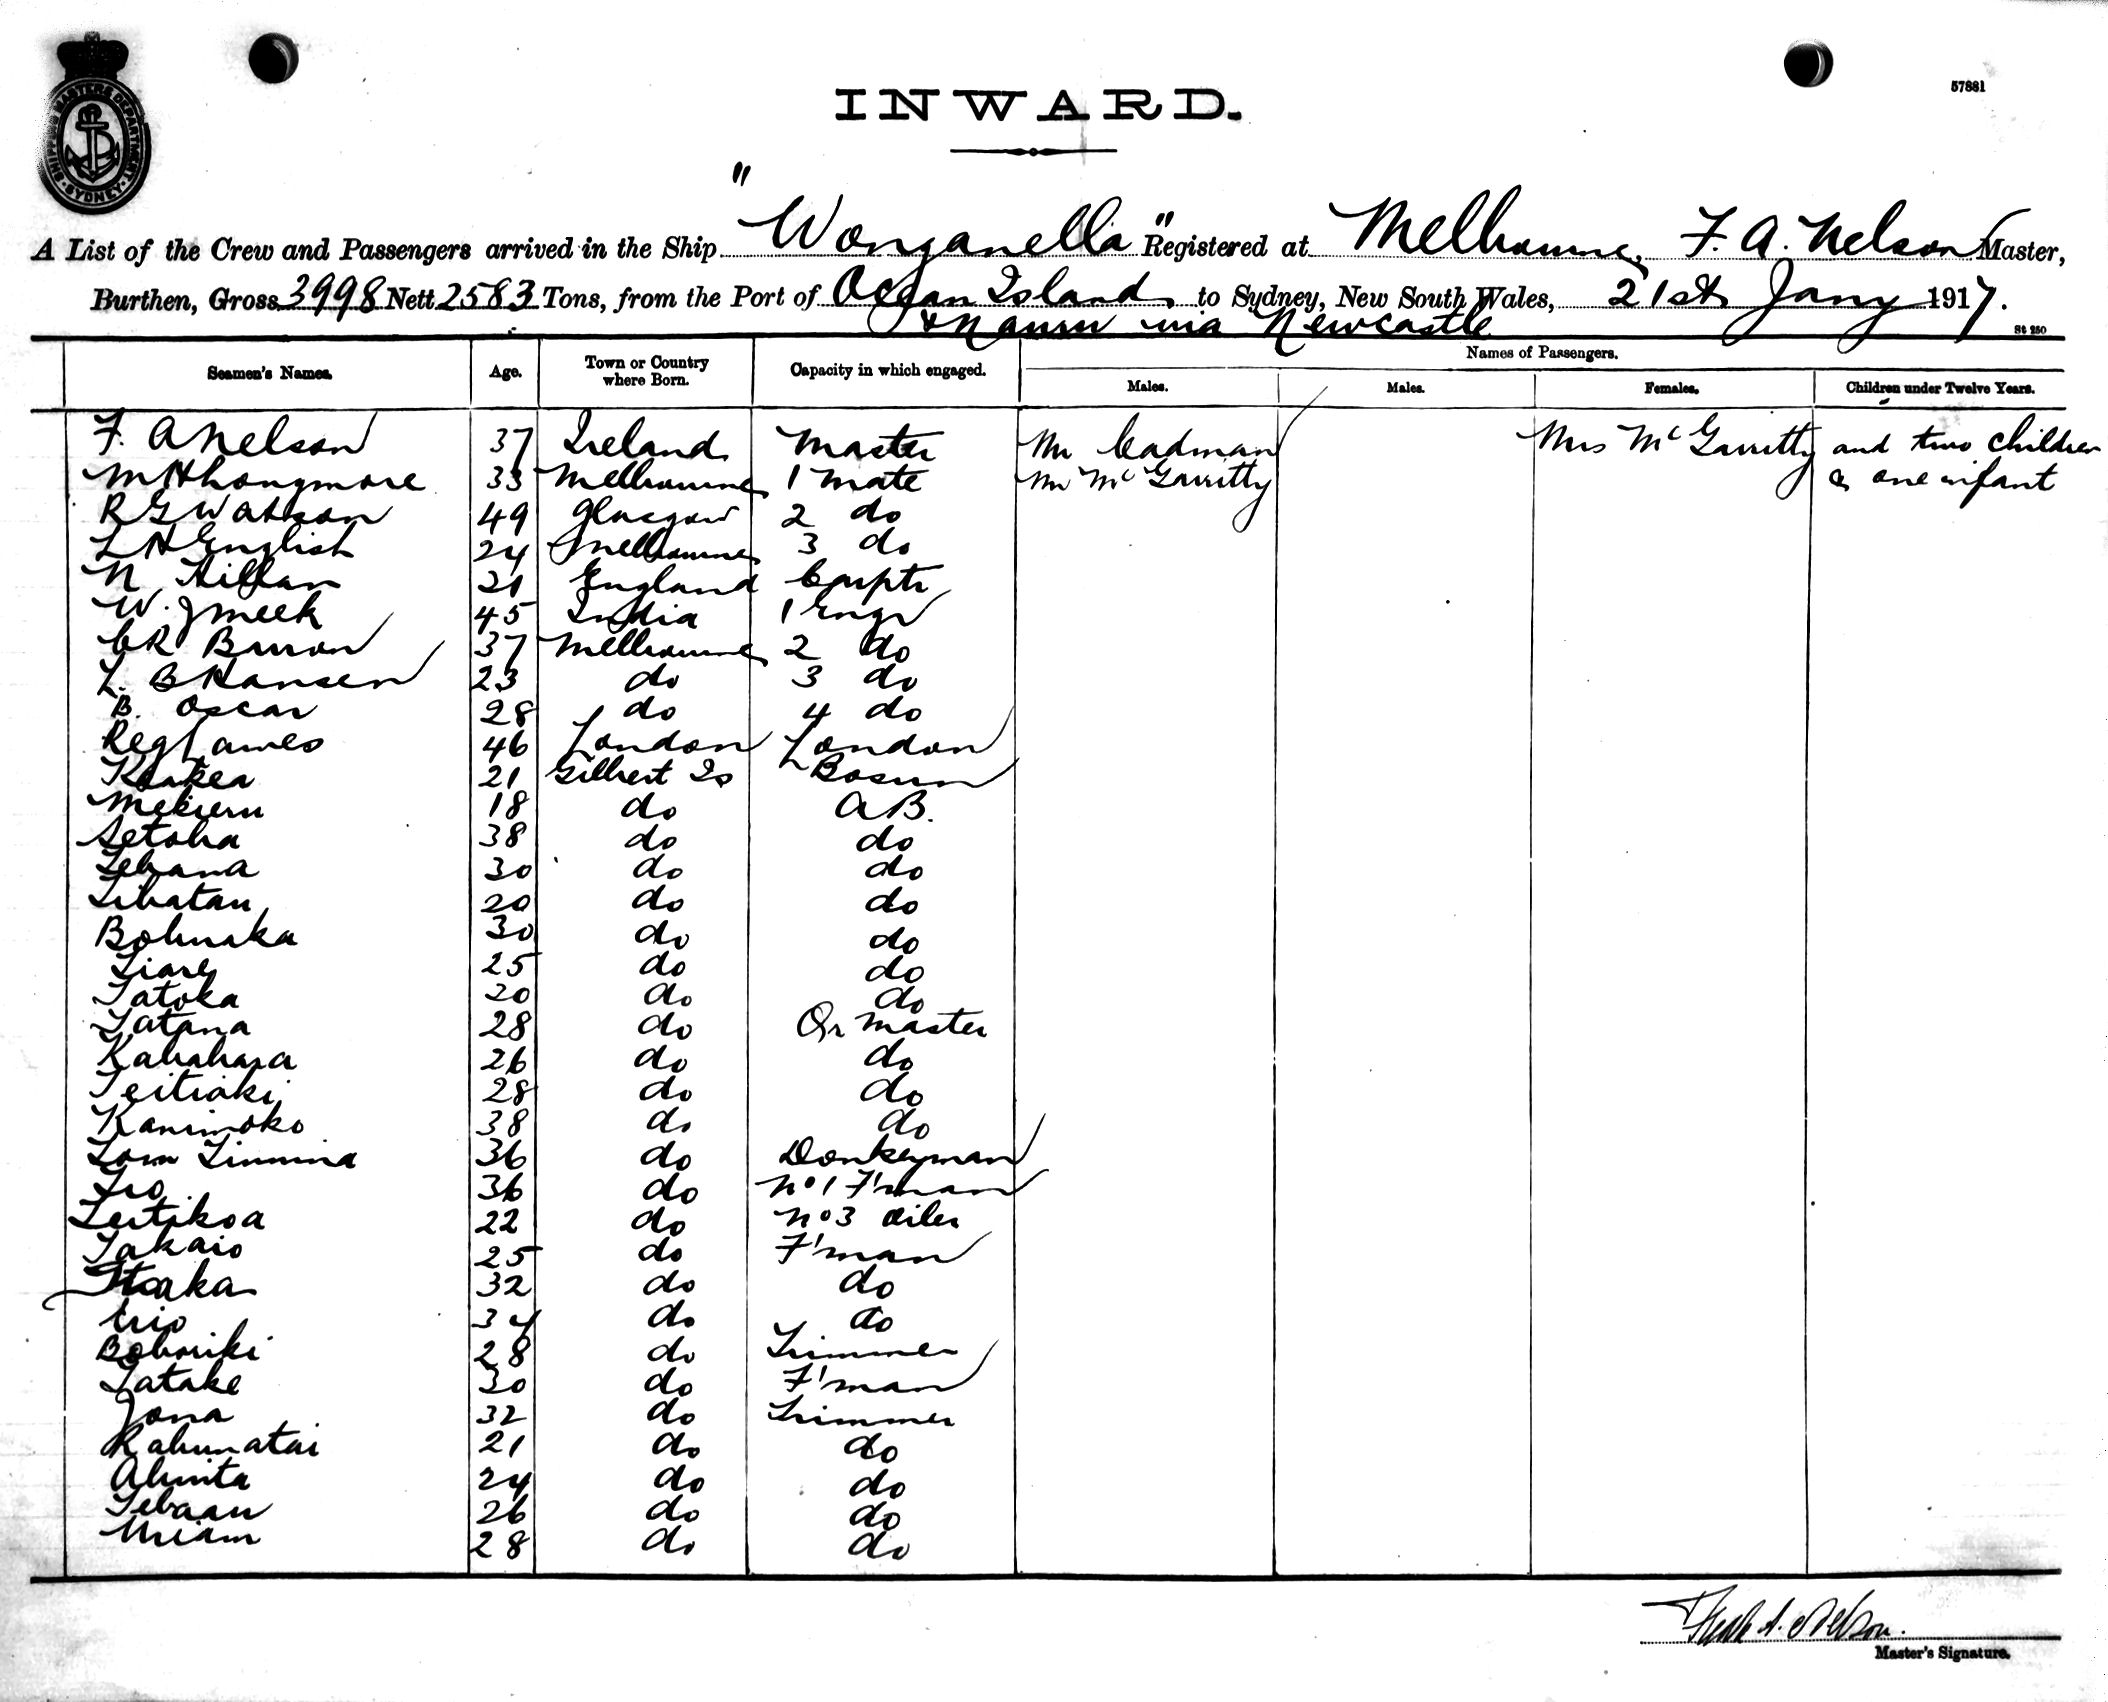 57881
INWARD.
SHIPPING MASTERS DEPARTMENT SYDNEY
A List of the Crew and Passengers arrived in the Ship "Wonganella" Registered at Melbourne, F. A. Nelson Master,
Burthen, Gross 3998 Nett 2583 Tons, from the Port of Ocean Island to Sydney, New South Wales, 21st Jany 1917.
& Nauru via Newcastle
St 250
Names of Passengers.
Seamen's Names. Age. Town or Country where Born. Capacity in which engaged. Males. Males. Females. Children under Twelve Years.
F. A Nelson 37 Ireland Master Mr Cadman Mrs McGarritty and two children
M H Longmore 33 Melbourne 1 Mate Mr McGarritty & one infant
R G Watson 49 Glasgow 2 do
L H English 24 Melbourne 3 do
N 21 England Carptr
W. J Meek 45 India 1 Engr
C R Barron 37 Melbourne 2 do
L. B Hansen 23 do 3 do
B. Oscar 28 do 4 do
Reg James 46 London London
21 Gilbert Is Bosun
18 do A B.
Setoba 38 do do
Tebana 30 do do
Tibatau 20 do do
30 do do
25 do do
Tatoka 20 do do
Tatana 28 do Qr Master
26 do do
Teitiaki 28 do do
38 do do
Tom 36 do Donkeyman
36 do No 1 F'man
Teitikoa 22 do No 3 Oiler
Takaio 25 do F'man
32 do do
34 do do
Boboriki 28 do Trimmer
Tatake 30 do F'man
Jona 32 do Trimmer
21 do do
24 do do
Tebaau 26 do do
Uriam 28 do do
Frank A. Nelson.
Master's Signature.